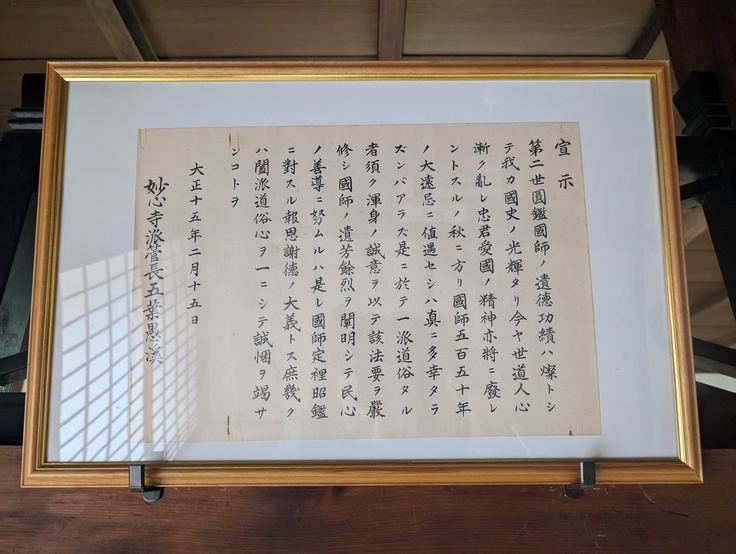 宣示
第二世圓鑑國師ノ遺德功績ハ燦トシ
テ我カ國史ノ光輝タリ今ヤ世道人心
漸ク亂レ忠君愛國ノ精神亦將ニ廢レ
ントスルノ秋ニ方リ國師五百五十年
ノ大遠忌ニ値遇セシハ真ニ多幸タラ
ズンバアラズ是ニ於テ一派道俗タル
者須ク渾身ノ誠意ヲ以テ該法要ヲ嚴
修シ國師ノ遺芳餘烈ヲ闡明シテ民心
ノ善導ニ努ムルハ是レ國師定裡昭鑑
ニ對スル報恩謝德ノ大義トス庶幾ク
ハ闔派道俗心ヲ一ニシテ誠悃ヲ竭サ
ンコトヲ
大正十五年二月十五日
妙心寺派管長五葉愚溪